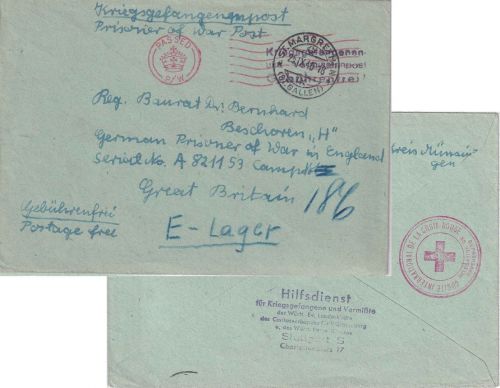 Kriegsgefangenenpost
Prisoner of War Post
PASSED
P/W
ST. MARGRETHEN
(ST. GALLEN)
Kriegsgefangenen
Reg. Baurat Dr. Bernhard
Beschoren "H"
German Prisoner of War in England
Serial No. A 821153 Camp
186
Great Britain
Gebührenfrei
Postage free
E-Lager
Kreis Münsin-
gen
COMITÉ INTERNATIONAL DE LA CROIX-ROUGE
Hilfsdienst
für Kriegsgefangene und Vermißte
der Württ. Ev. Landeskirche
des Caritasverbandes für Württemberg
u. des Württ. Roten Kreuzes
Stuttgart S
17